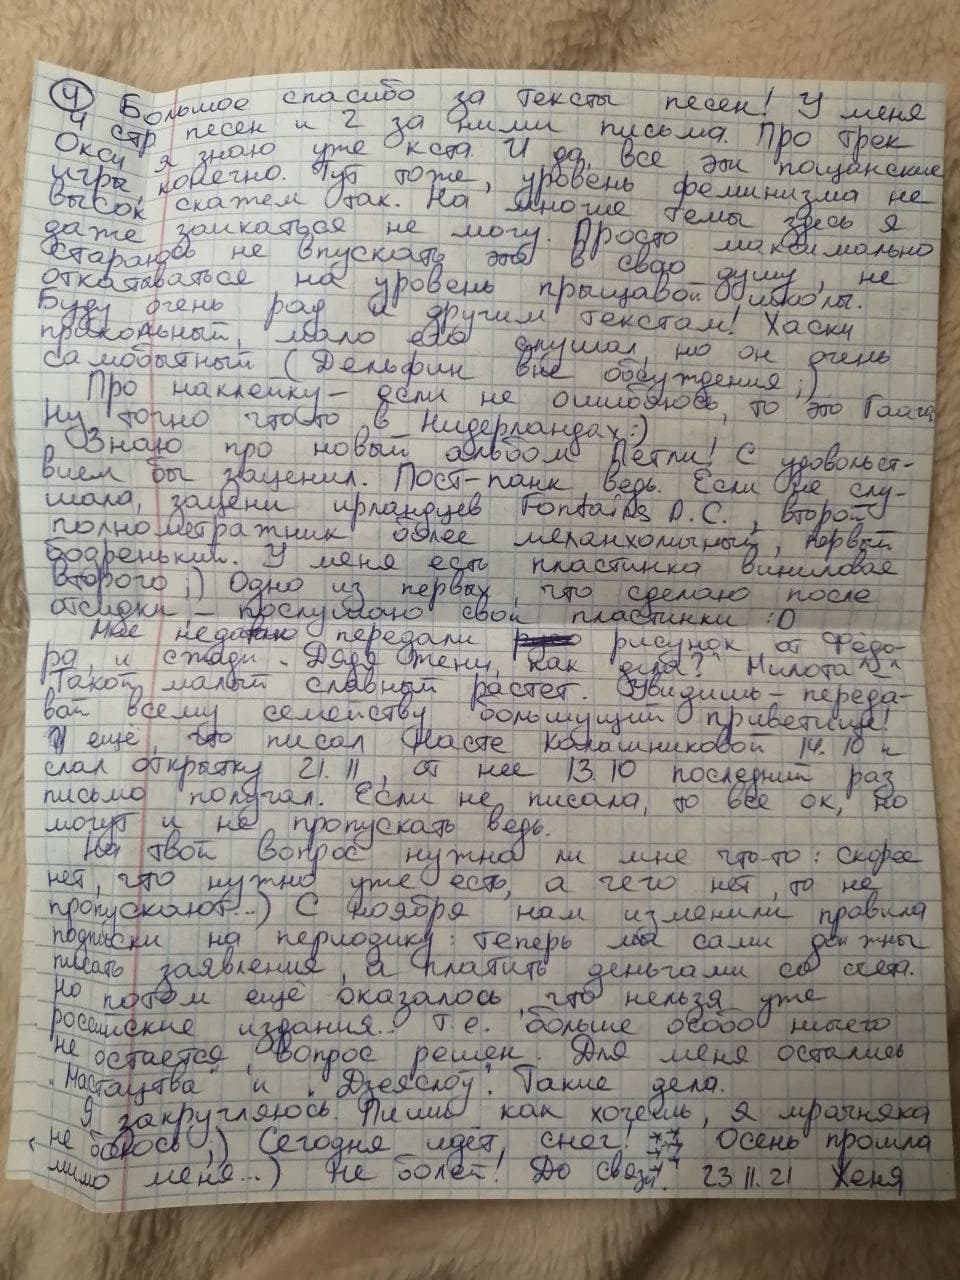 ④ Большое спасибо за тексты песен! У меня
4 стр песен и 2 за ними письма. Про трек
Окси я знаю уже кста. И да, все эти пацанские
игры, конечно. Тут тоже, уровень феминизма не
высок, скажем так. На многие темы здесь я
даже заикаться не могу. Просто максимально
стараюсь не впускать это в свою душу, не
откатываться на уровень прыщавой школы.
Буду очень рад и другим текстам! Хаски
прикольный, мало его слушал, но он очень
самобытный (Дельфин вне обсуждения ;)
Про наклейку – если не ошибаюсь, то это Гаага
Ну точно что-то в Нидерландах :)
Знаю про новый альбом Петли! С удовольст-
вием бы заценил. Пост-панк ведь. Если не слу-
шала, зацени ирландцев Fontains D.C., второй
полнометражник более меланхоличный, первый
бодренький. У меня есть пластинка виниловая
второго ;) Одно из первых, что сделаю после
отсидки – послушаю свои пластинки :D
Мне недавно передали рисунок от Фёдо-
ра, и сзади "Дядя Женя, как дела?" Милота^^
Такой малый славный растет. Увидишь – переда-
вай всему семейству большущий приветище!
И ещё, что писал Насте Калашниковой 14.10 и
слал открытку 21.11, от нее 13.10 последний раз
письмо получал. Если не писала, то все ок, но
могут и не пропускать ведь.
На твой вопрос нужно ли мне что-то: скорее
нет, что нужно уже есть, а чего нет, то не
пропускают...) С ноября нам изменили правила
подписки на периодику: теперь мы сами должны
писать заявления, и платить деньгами со счета.
Но потом ещё оказалось, что нельзя уже
российские издания... Т.е. больше особо ничего
не остается, вопрос решен. Для меня остались
"Мастацтва" и "Дзеяслоў". Такие дела.
Я закругляюсь. Пиши как хочешь, я мрачняка
не боюсь ;) Сегодня идёт снег! Осень прошла
мимо меня...) Не болей! До связи. 23.11.21 Женя